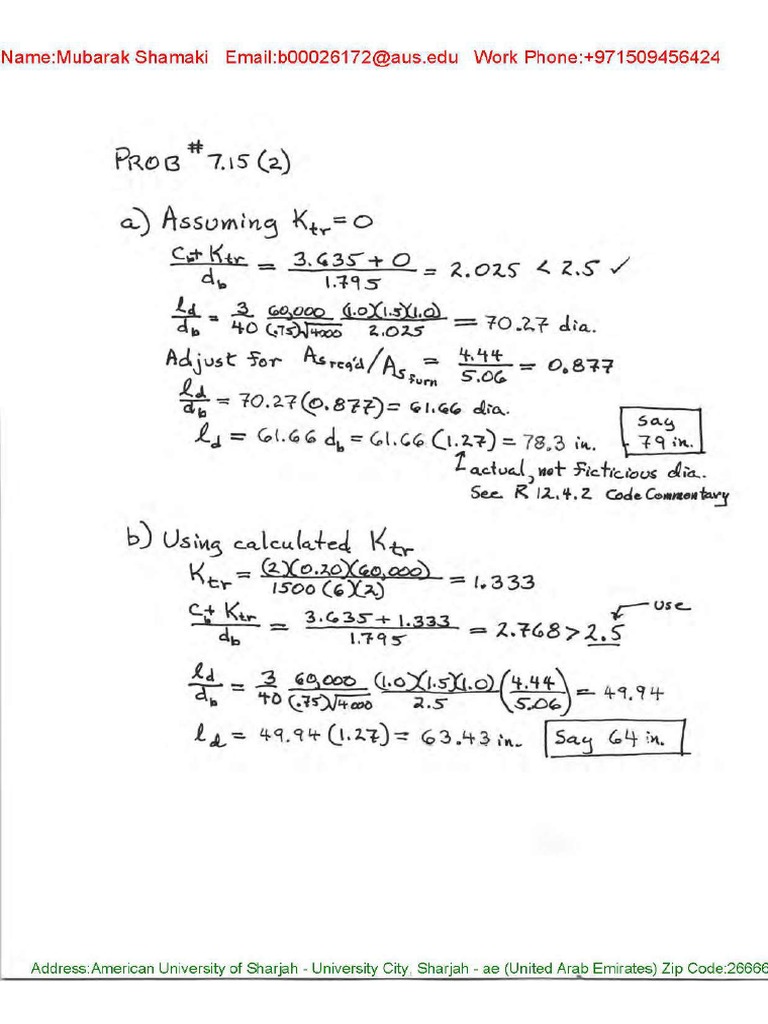 Name:Mubarak Shamaki   Email:b00026172@aus.edu   Work Phone:+971509456424
PROB # 7.15 (2)
a) Assuming K_tr = 0
(c_b + K_tr)/d_b = (3.635 + 0)/1.795 = 2.025 < 2.5 ✓
l_d/d_b = 3/40 60,000/((.75)√4000) (1.0)(1.5)(1.0)/2.025 = 70.27 dia.
Adjust for As req'd/As furn = 4.44/5.06 = 0.877
l_d/d_b = 70.27(0.877) = 61.66 dia.
l_d = 61.66 d_b = 61.66 (1.27) = 78.3 in.
Say
79 in.
↑ actual, not ficticious dia.
See R 12.4.2 Code Commentary
b) Using calculated K_tr
K_tr = (2)(0.20)(60,000)/(1500 (6)(2)) = 1.333
(c_b + K_tr)/d_b = (3.635 + 1.333)/1.795 = 2.768 > 2.5 ← use
l_d/d_b = 3/40 60,000/((.75)√4000) (1.0)(1.5)(1.0)/2.5 (4.44/5.06) = 49.94
l_d = 49.94 (1.27) = 63.43 in. Say 64 in.
Address:American University of Sharjah - University City, Sharjah - ae (United Arab Emirates) Zip Code:26666